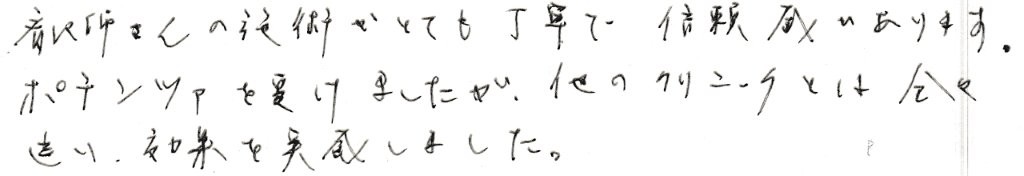 看護師さんの施術がとても丁寧で信頼感があります。
ポテンツァを受けましたが、他のクリニックとは全く
違い、効果を実感しました。